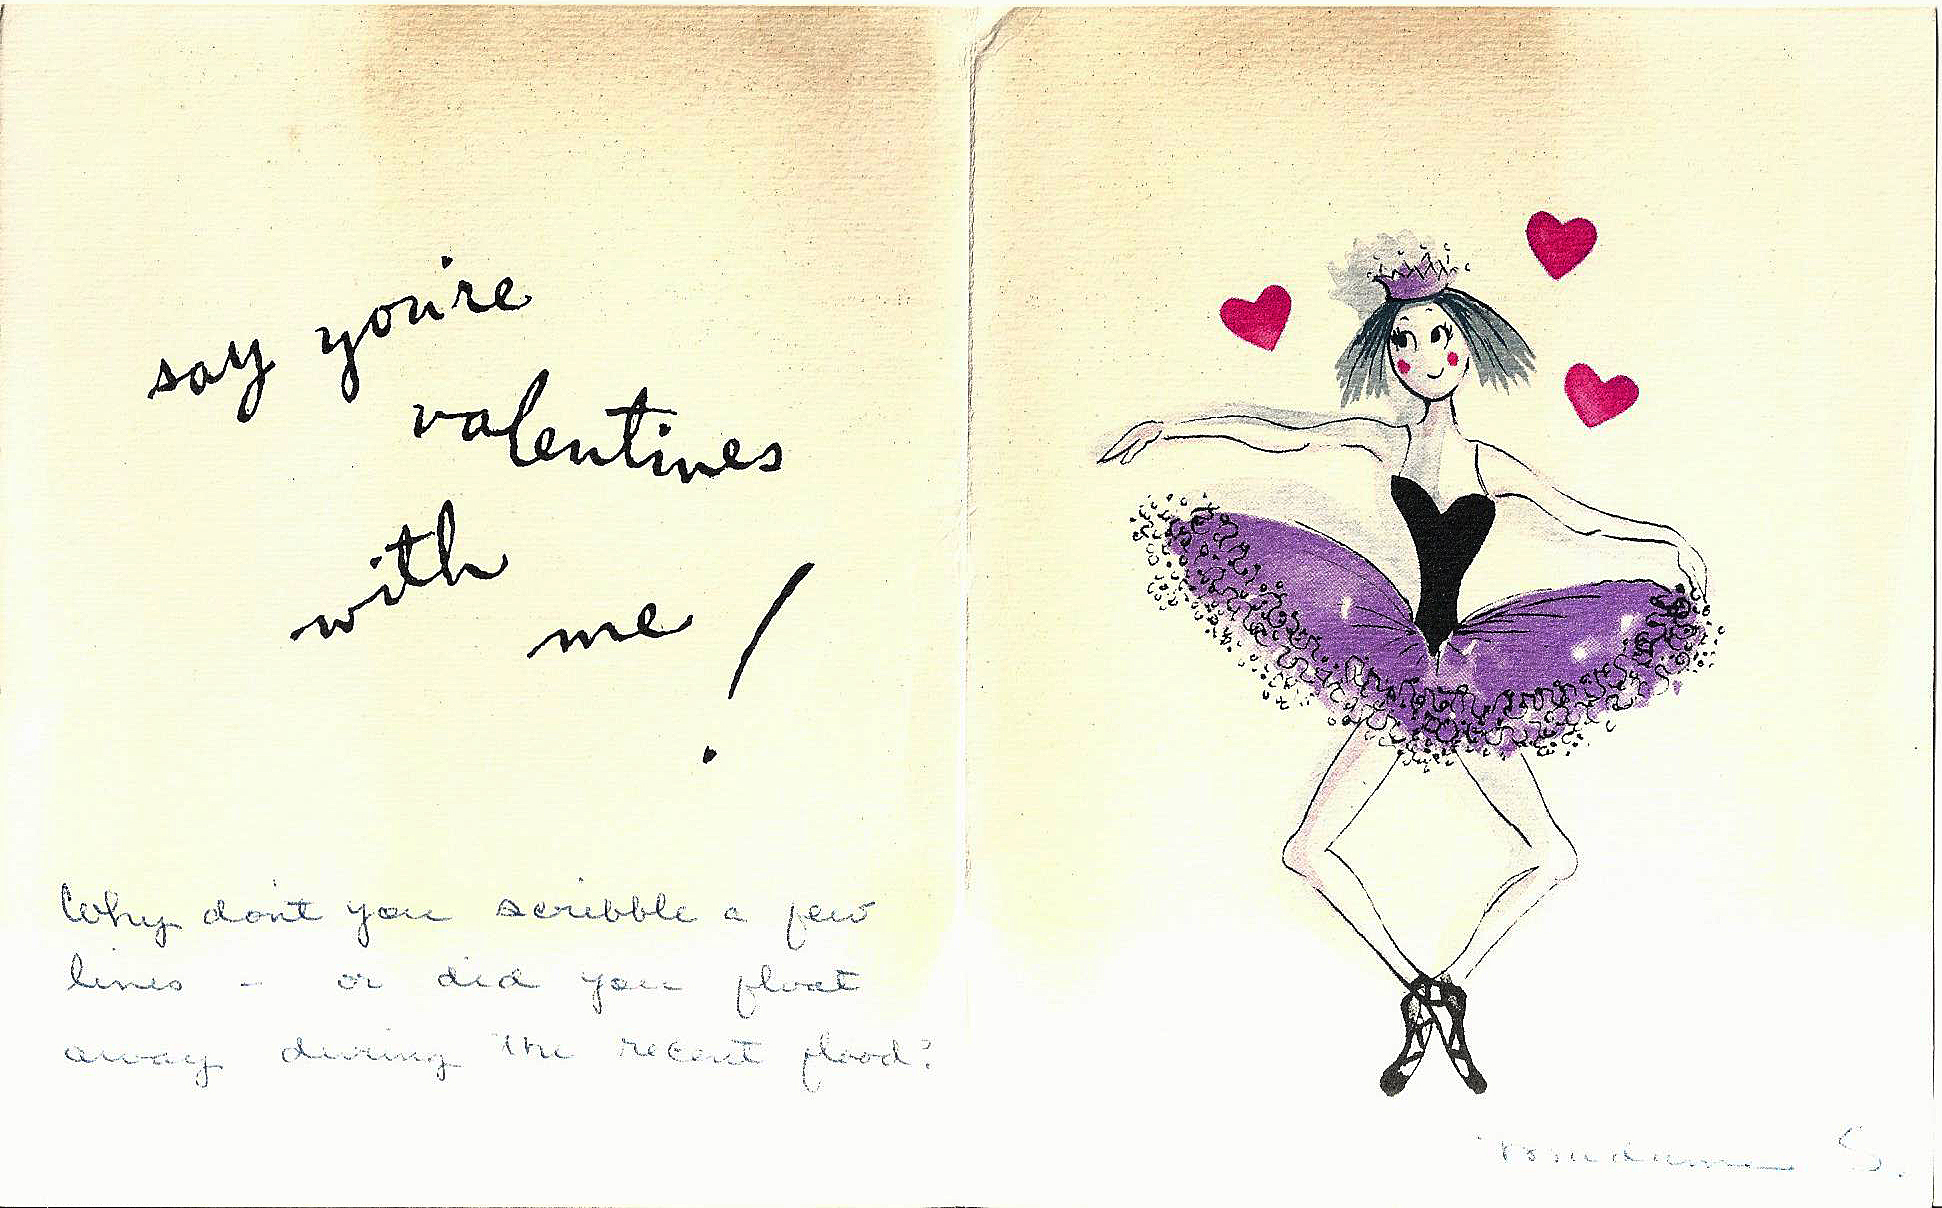 say you're
valentines
with
me!
Why don't you scribble a few
lines - or did you float
away during the recent flood?
S.